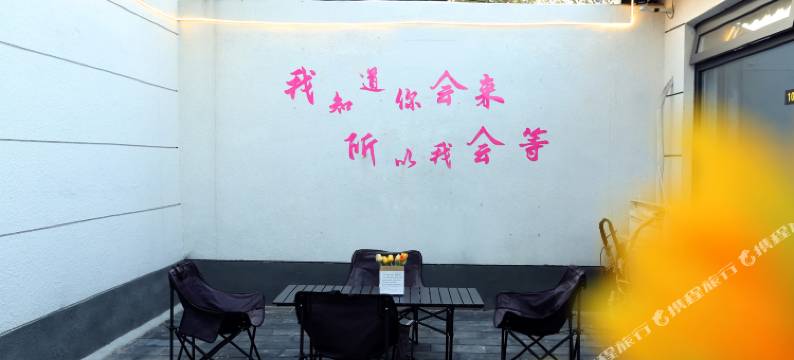 我知道你会来
所以我会等
10
携程旅行
携程旅行